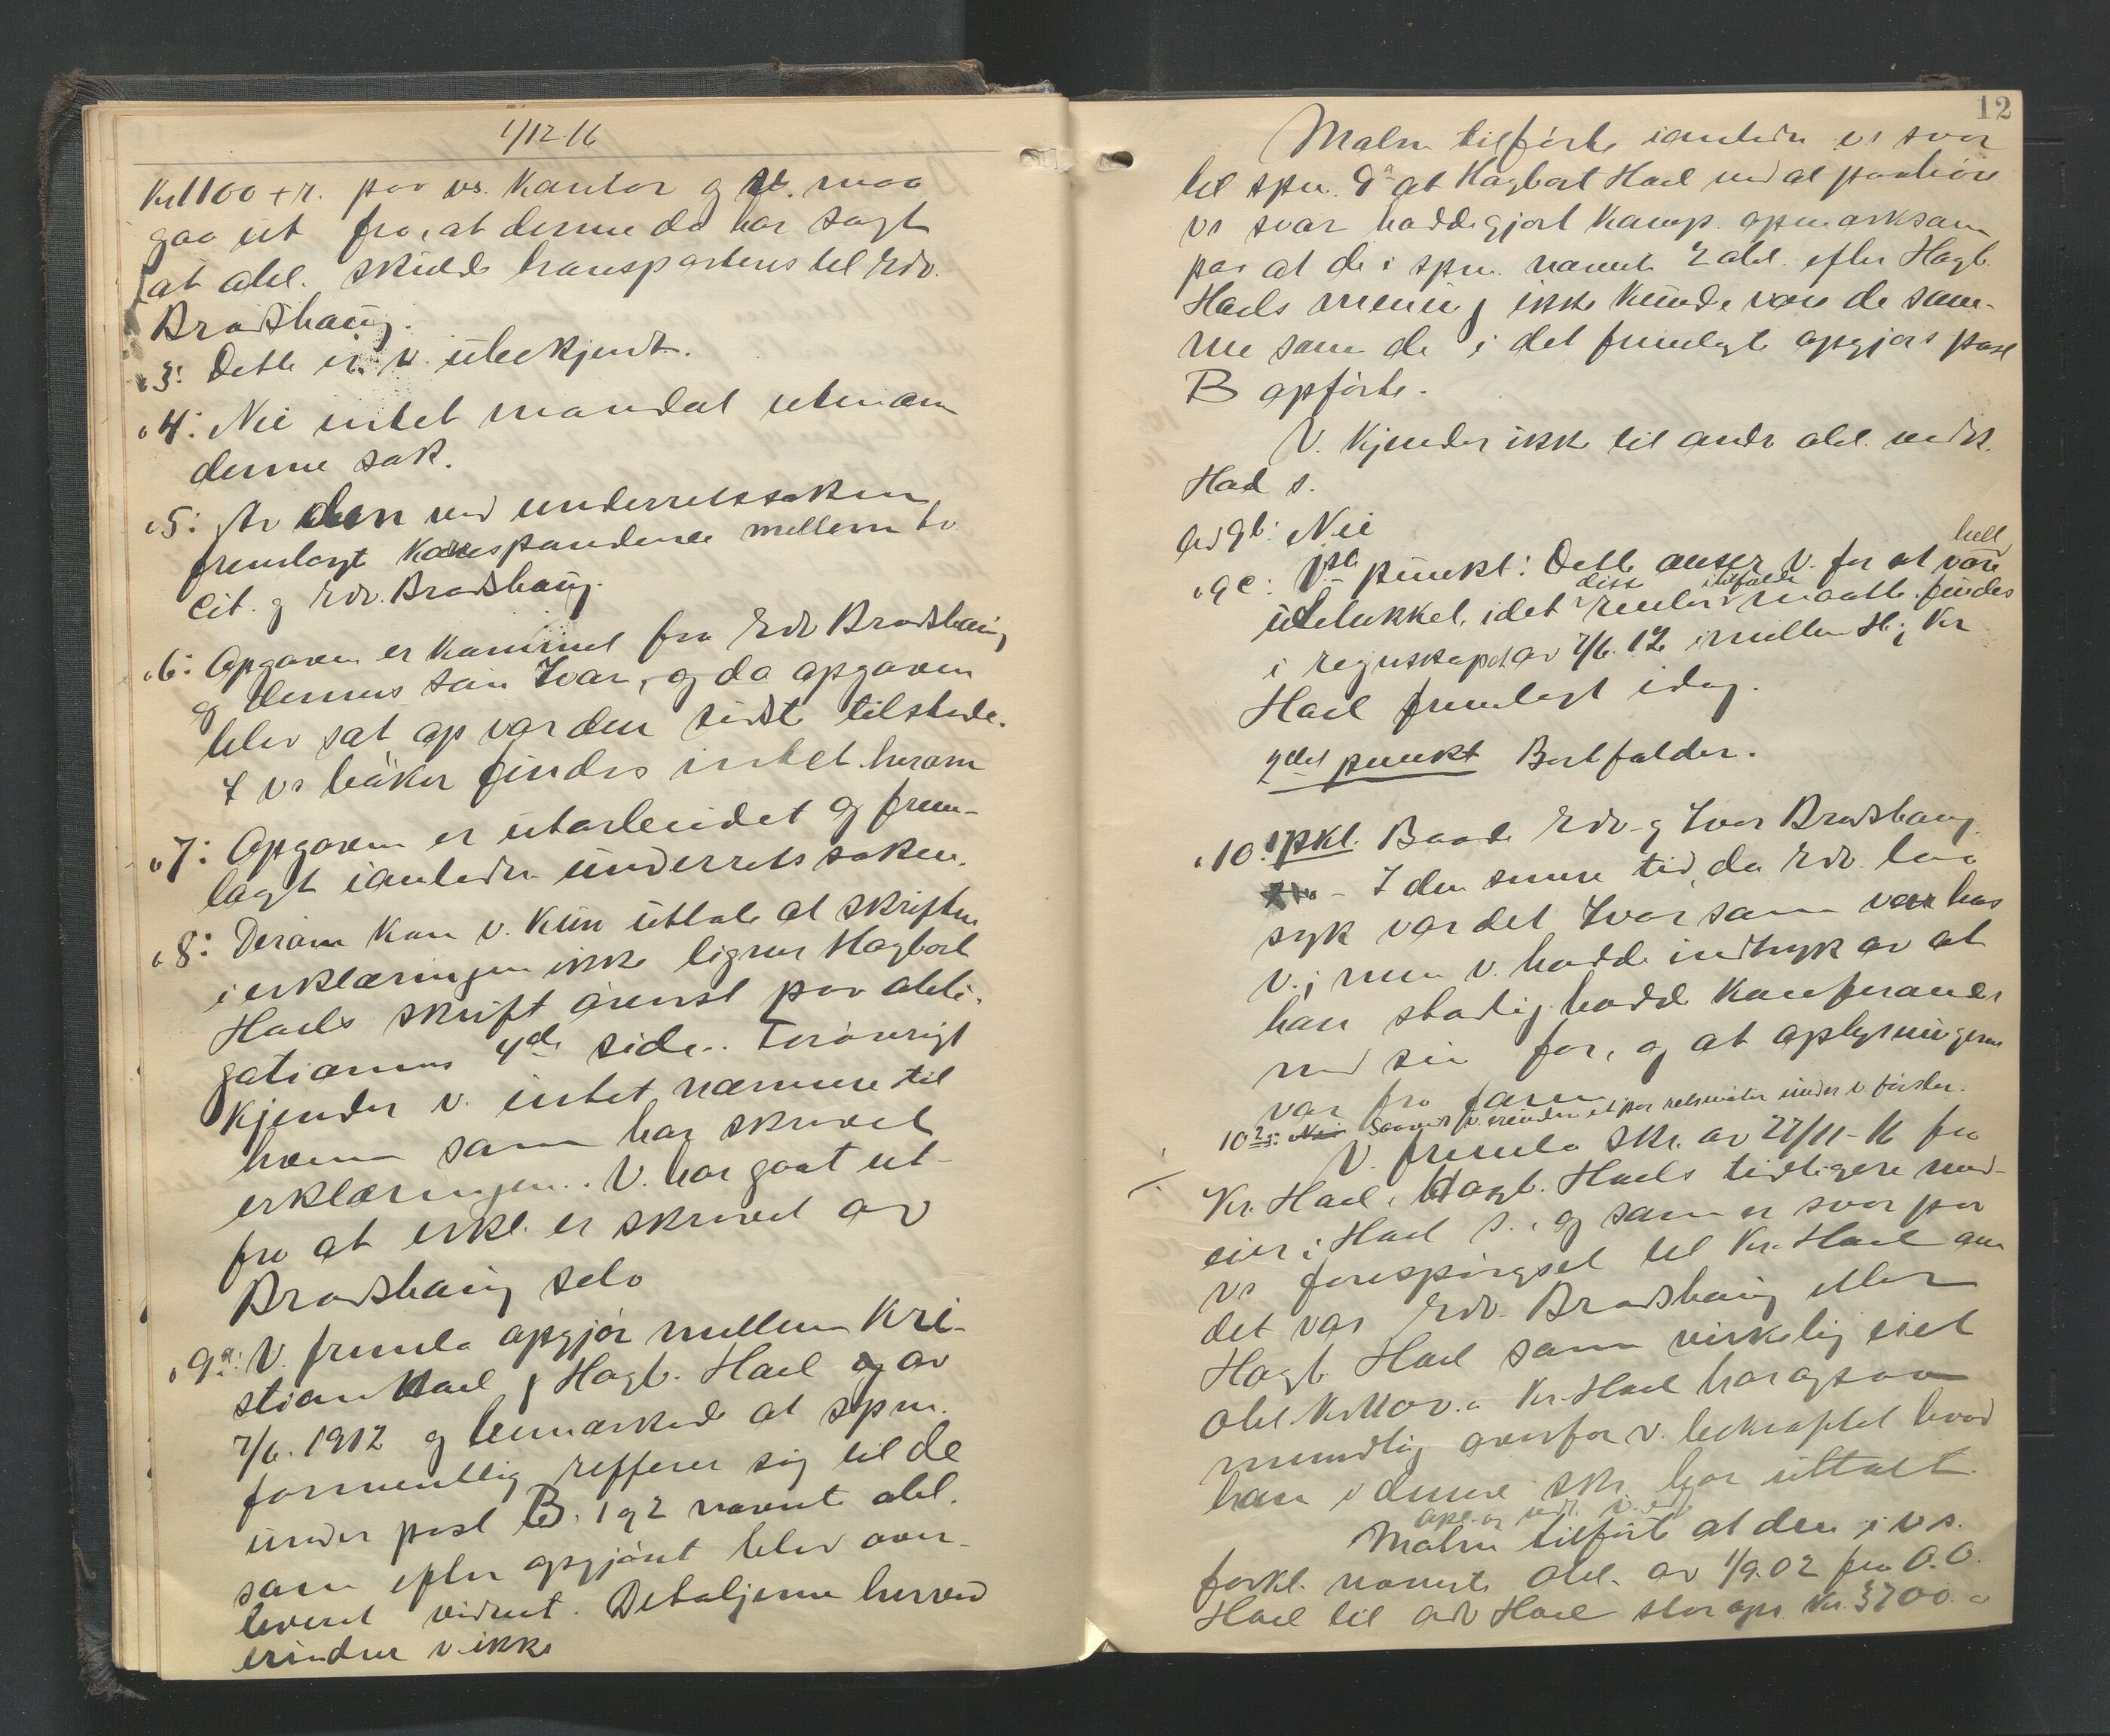 1/12-16
Kr 1100 + r. paa vs. Kantor og v. maa
gaa ut fra, at denne da har sagt
at obl. skulde transporteres til Edv.
Bradshaug.
" 3: Dette er v. ubekjendt.
" 4: Nei intet mandat utenom
denne sak.
" 5: Av den ved underretssaken
fremlagt Korrespondence mellem to
Cit. og Edv. Bradshaug.
" 6: Opgaven er Kommet fra Edv Bradshaug
og dennes søn Ivar, og da opgaven
blev sat op var den sidste tilstede.
I vs bøker findes intet herom
" 7: Opgaven er utarbeidet og frem-
lagt i anledn underretssaken.
" 8: Derom Kan v. Kun uttale at skriften
i erklæringen ikke ligner Hagbart
Haels skrift øverst paa obli-
gationens 4de side. Forøvrigt
Kjender v. intet nærmere til
hvem som har skrevet
erklæringen. V. har gaat ut
fra at erkl. er skrevet av
Bradshaug selv
" 9a: V. fremla opgjør mellem Kri-
stian Hael og Hagb. Hael av
7/6. 1912 og bemærkede at spm.
formentlig refferer sig til de
under post B. 1 og 2 nævnte obl.
som efter opgjøret blev over-
leveret vidnet. Detaljerne herved
erindrer v. ikke
12
Malm tilførte i anledn vs svar
til spm. 9a at Hagbart Hael ved at paahøre
vs svar hadde gjort Kamp. opmerksom
paa at de i spm. nævnte 2 obl. efter Hagb.
Haels mening ikke Kunde være de sam-
me som de i det fremlagte opgjørs post
B opførte.
V. Kjender ikke til andre obl. vedk.
Hael s.
Ad 9b: Nei
" 9c: 1ste punkt: Dette anser v. for at være
helt
utelukket, idet disse renter i tilfælde maatte findes
i regnskapet av 7/6. 12 mellem H. og Kr
Hael fremlagt idag.
2det punkt Bortfalder.
" 10: 1 pkt. Baade Edv. og Ivar Bradshaug.
- I den senere tid, da Edv. laa
syk var det Ivar som var hos
v.; men v. hadde indtryk av at
han stadig hadde Konferancer
med sin far, og at oplysningerne
var fra faren
10 2: Saavidt v. erindrer et par retsmøter under v førsler.
V. fremla Skr. av 27/11-16 fra
Kr. Hael, Hagb. Haels tidligere med-
eier i Hael s., og som er svar paa
vs forespørgsel til Kr. Hael om
det var Edv. Bradshaug eller
Hagb. Hael som virkelig eiet
Obl. Kr. 1100. Kr. Hael har ogsaa
mundtlig overfor v. bekræftet hvad
han i denne skr. har uttalt.
Opl. og vedt. v. ed
Malm tilførte at den i vs.
forkl. nævnte Obl. av 1/9.02 fra O. O.
Hael til Hael stor opr. Kr. 3700.